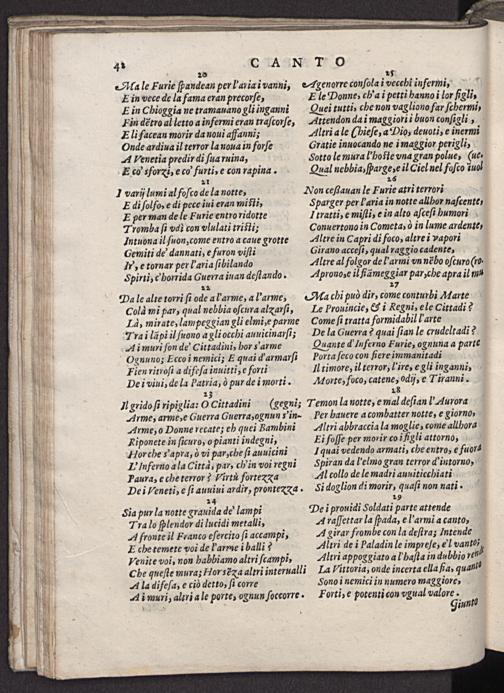 42 CANTO
20
Ma le Furie spandean per l'aria i vanni,
E in vece de la fama eran precorse,
E in Chioggia ne tramauano gli inganni
Fin dẽtro al letto a infermi eran trascorse,
E li facean morir da noui affanni;
Onde ardiua il terror la noua in forse
A Venetia predir di sua ruina,
E co' sforzi, e co' furti, e con rapina.
21
I varij lumi al fosco de la notte,
E di solfo, e di pece iui eran misti,
E per man de le Furie entro ridotte
Tromba si vdì con vlulati tristi;
Intuona il suon, come entro a caue grotte
Gemiti de' dannati, e furon visti
Ir', e tornar per l'aria sibilando
Spirti, e'horrida Guerra iuan destando.
22
Da le alte torri si ode a l'arme, a l'arme,
Colà mi par, qual nebbia oscura alzarsi,
Là, mirate, lampeggian gli elmi, e parme
Tra i lãpi il suono a gli occhi auuicinarsi;
A i muri son de' Cittadini, hor s'arme
Ognuno; Ecco i nemici; E quai d'armarsi
Fien ritrosi a difesa inuitti, e forti
De i viui, de la Patria, ò pur de i morti.
23
Il grido si ripiglia: O Cittadini (gegni;
Arme, arme, e Guerra Guerra, ognun s'in-
Arme, o Donne recate; eh quei Bambini
Riponete in sicuro, o pianti indegni,
Hor che s'apra, ò vi par, che si auuicini
L'Inferno a la Città, par, ch'in voi regni
Paura, e che terror? Virtù fortezza
De i Veneti, e si auuiui ardir, prontezza.
24
Sia pur la notte grauida de' lampi
Tra lo splendor di lucidi metalli,
A fronte il Franco esercito si accampi,
E che temete voi de l'arme i balli?
Venite voi, non habbiamo altri scampi,
Che queste mura; Hortẽza altri interualli
A la difesa, e ciò detto, si corre
A i muri, altri a le porte, ognun soccorre.
25
Agenorre consola i vecchi infermi,
E le Donne, ch'a i petti hanno i lor figli,
Quei tutti, che non vagliono far schermi,
Attendon da i maggiori i buon consigli,
Altri a le Chiese, a Dio, deuoti, e inermi
Gratie inuocando ne i maggior perigli,
Sotto le mura l'hoste vna gran polue, (ue.
Qual nebbia, sparge, e il Ciel nel fosco iuol
26
Non cessauan le Furie atri terrori
Sparger per l'aria in notte allhor nascente,
I tratti, e misti, e in alto ascesi humori
Conuertono in Cometa, ò in lume ardente,
Altre in Capri di foco, altre i vapori
Girano accesi, qual raggio cadente,
Altre al folgor de l'armi vn nẽbo oscuro (ro.
Aprono, e il fiãmeggiar par, che apra il mu
27
Ma chi può dir, come conturbi Marte
Le Prouincie, & i Regni, e le Cittadi?
Come si tratta formidabil l'arte
De la Guerra? quai sian le crudeltadi?
Quante d'Inferno Furie, ognuna a parte
Porta seco con fiere immanitadi
Il timore, il terror, l'ire, e gli inganni,
Morte, foco, catene, odij, e Tiranni.
28
Temon la notte, e mal desian l'Aurora
Per hauere a combatter notte, e giorno,
Altri abbraccia la moglie, come allhora
Ei fosse per morir co i figli attorno,
I quai vedendo armati, che entro, e fuora
Spiran da l'elmo gran terror d'intorno,
Al collo de le madri auuiticchiati
Si doglion di morir, quasi non nati.
29
De i prouidi Soldati parte attende
A rassettar la spada, e l'armi a canto,
A girar frombe con la destra; Intende
Altri de i Paladin le imprese, e'l vanto;
Altri appoggiato a l'hasta in dubbio rende
La Vittoria, onde incerta ella sia, quanto
Sono i nemici in numero maggiore,
Forti, e potenti con vgual valore.
Giunto